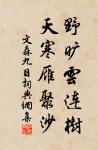 野旷雪连树
天寒雁聚沙
文森九日词典网集